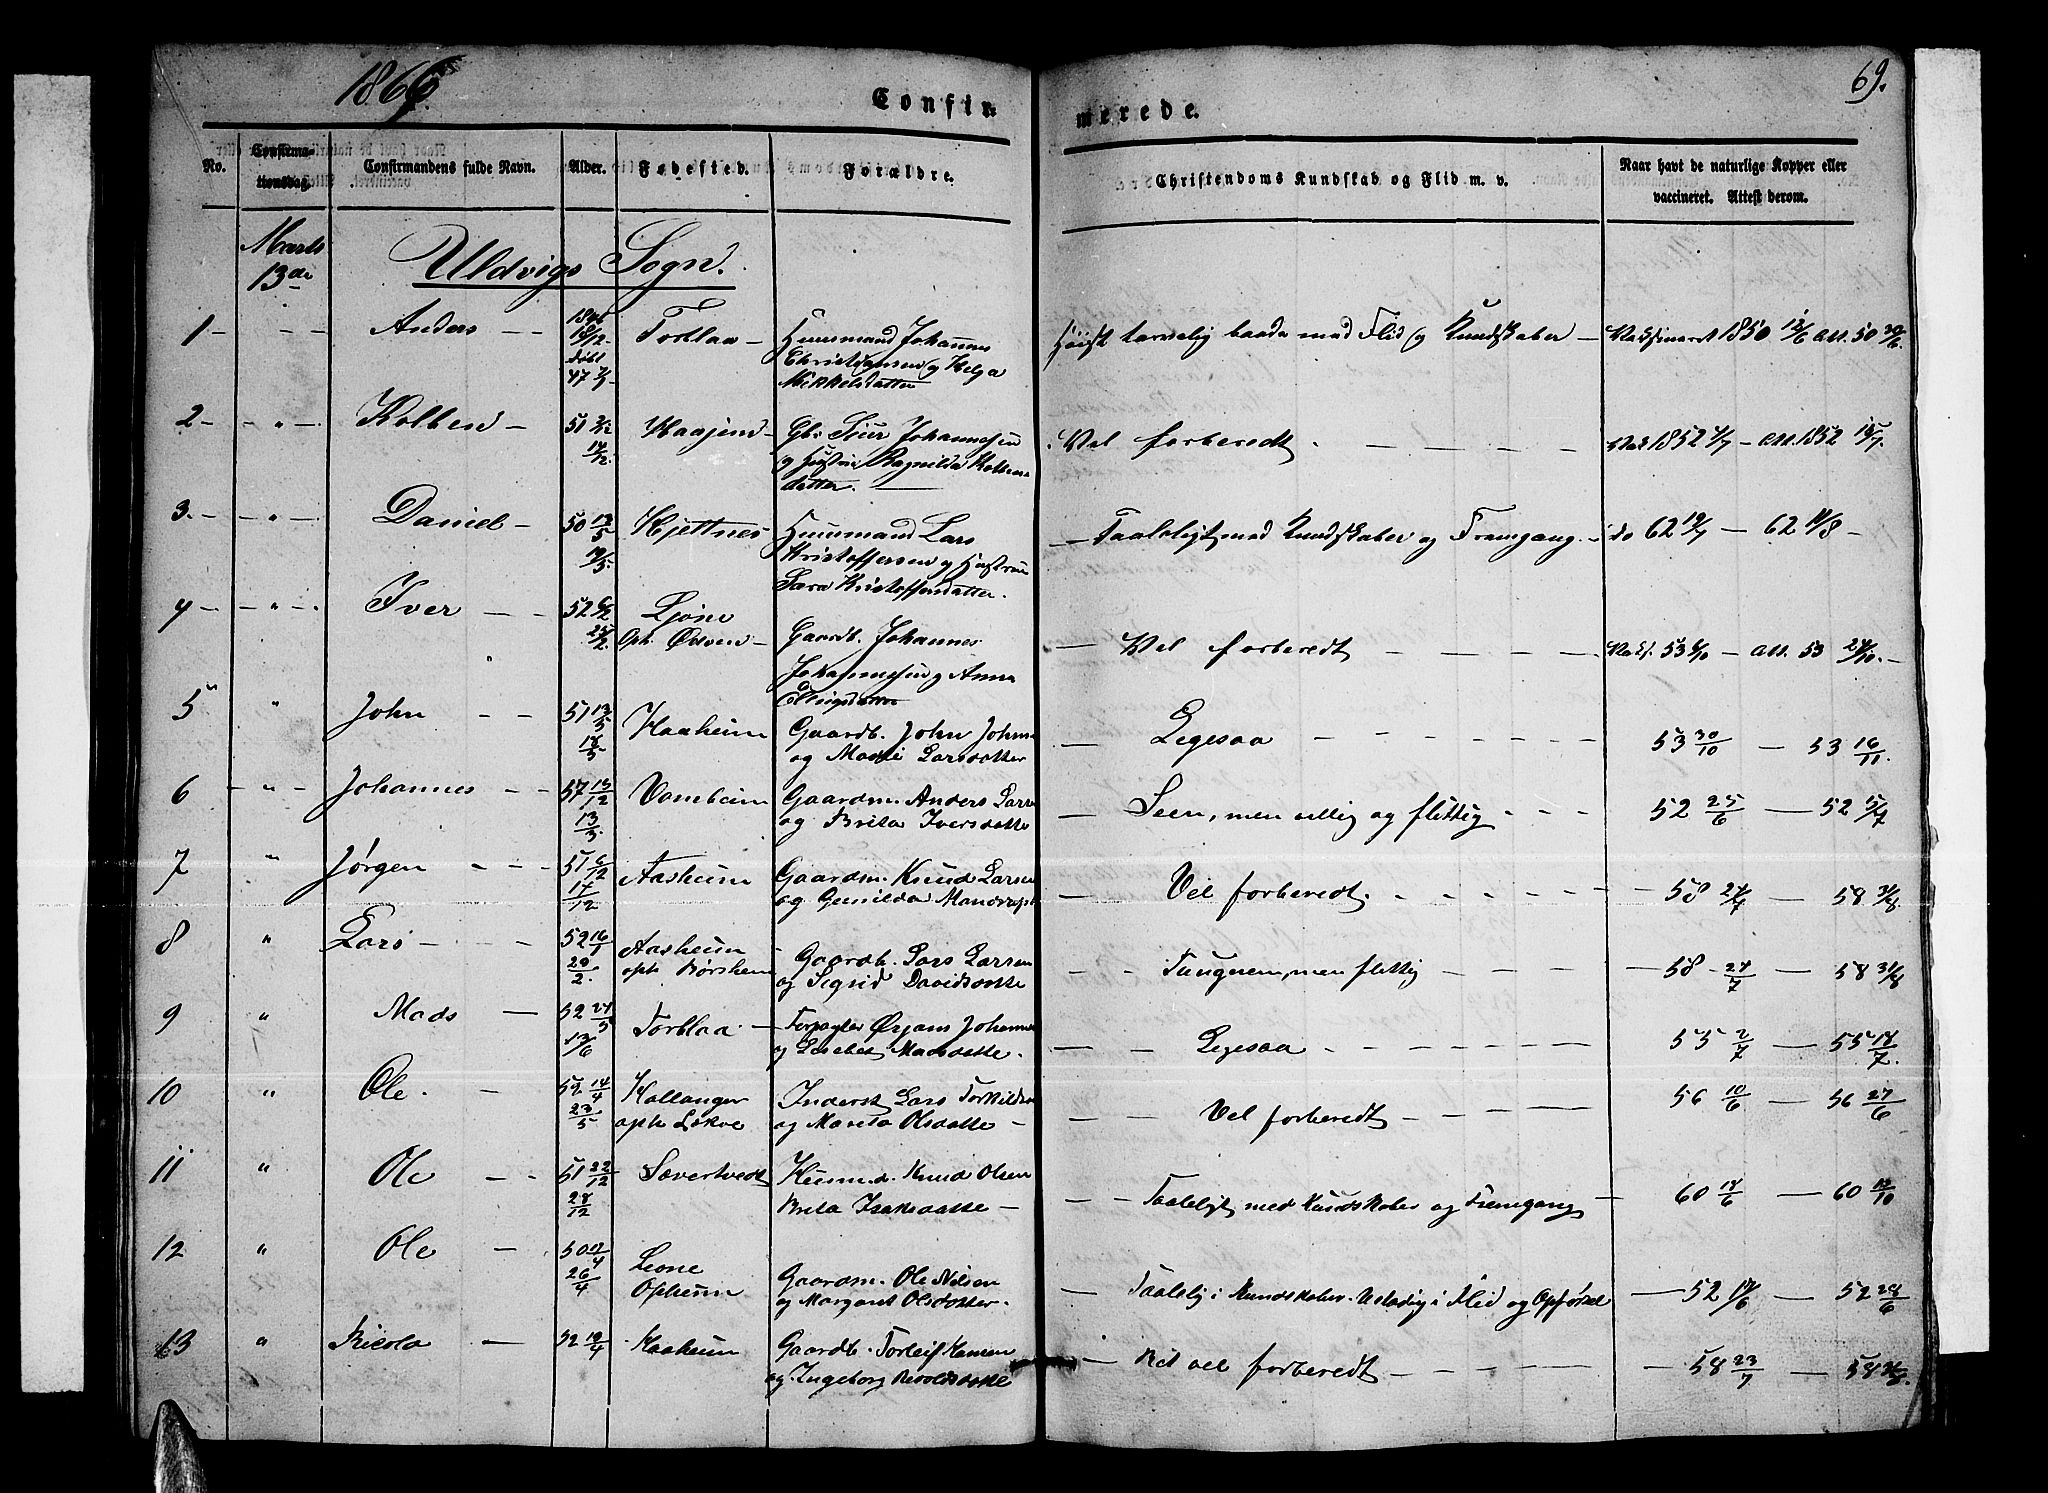 1866
Confir
merede.
69.
No.
Confirma-
tionsdag.
Confirmandens fulde Navn.
Alder.
Fødested.
Forældre.
Christendoms Kundskab og Flid m. v.
Naar havt de naturlige Kopper eller
vaccineret. Attest derom.
Marts
13de
Uldvigs Sogn.
1 - Anders - 1846 18/12 døbt 47 Torblaa - Huusmand Johannes
Christiansen og Helga
Mikkelsdatter
Høist tarvelig baade med Flid og Kundskaber - 1850 12/6 att. 50 30/6
2 - " - Kolben - 51 14/12 Haajem - Gbr. Siur Johannesen
og Hustru Ragnilda Kolbens
datter.
Vel forberedt - 1852 - att. 1852 15/7.
3. - " - Daniel - 50 12/5 19/5 Hjeltnes - Huusmand Lars
Kristoffersen og Hustru
Sara Kristoffersdatter.
- Taaleligt med Kundskaber og Fremgang - do 62 19/7 - 62 11/8 -
4 - " - Iver - 52 6/2 25/2 Ljone
Oph. Øvsen - Gaardb. Johannes
Johannesen og Anna
Ellingsdatter
- Vel forberedt - 53 6/10 - att. 53 24/10. -
5 " John - - 51 13/5 18/5 Haaheim Gaardb. John Johns
og Madli Larsdatter
- Ligesaa - 53 30/10 - 53 16/11.
6 - " - Johannes - - 13/12 13/3 Vambeim Gaardm. Anders Lars
og Brita Iversdatte
- Seen, men villig og flittig - - - 52 25/6 - 52 5/7
7 " Jørgen - - 51 6/12 14/12 Aasheim Gaardm. Knud Larsen
og Gunilda Mandrups
- Vel forberedt. - 58 27/7 - 58 31/8.
8 " Lars - - 52 16/1 29/2. Aasheim
oph. Børsheim Gaardb. Lars Larsen
og Sigrid Davidsdatte
- - Tungnem, men flittig - 58 27/7 - 58 31/8
9 " Mads - 52 24/5 13/6 Torblaa - Ørjans Johannes
og Lisebet Madsdatte.
- - Ligesaa - 55 2/7 - 55 18/7.
10 " Ole. - 52 14/4 23/5 Hallanger
oph. Lekve Inderst Lars Torkilds
og Marita Olsdatte -
- - Vel forberedt - 56 10/6 - 56 27/6
11 " Ole - - 51 22/12 28/12 Sævertvedt Huusmd. Knud Olsen
Brita Isaksdatte -
- - Taaleligt med Kundskaber og Fremgang - 60 18/6 - 60 12/10
12 " Ole - 50 12/4 26/4 Leone
Opheim Gaardm. Ole Nilsen
og Margaret Olsdotter.
- Taalelig i Kundskaber. Ustadig i Flid og Opførsel - 52 17/6 52 28/6
13 " Nicola - 52 19/4 Haaheim Gaardb. Torleif Hansen
og Ingeborg Nicolsdatte
- vel forberedt - - 58 23/7 - 58 31/8.